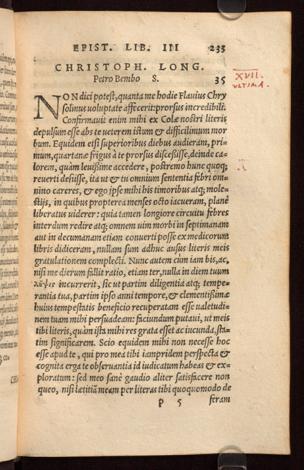 EPIST. LIB. III 235
CHRISTOPH. LONG.
Petro Bembo S. 35
XVII.
VLTIMA.
NON dici potest, quanta me hodie Flauius Chry
solinus uoluptate affecerit: prorsus incredibili.
Confirmauit enim mihi ex Colæ nostri literis
depulsum esse abs te ueterem istũ & difficilimum mor
bum. Equidem etsi superioribus diebus audieram, pri
mum, quartanæ frigus à te prorsus discessisse, deinde ca
lorem, quàm leuissime accedere, postremo hunc quoq;
reuerti desiisse, ita ut & tu omnium sententia febri om
nino careres, & ego ipse mihi bis timoribus atq; mole-
stijs, in quibus propterea menses octo iacueram, planè
liberatus uiderer: quia tamen longiore circuitu febres
interdum redire atq; omnem uim morbi in septimanam
aut in decumanam etiam conuerti posse ex medicorum
libris didiceram, nullam sum adhuc ausus literis meis
gratulationem complecti. Nunc autem cùm iam bis, ac,
nisi me dierum fillit ratio, etiam ter, nulla in diem tuum
incurrerit, sic ut partim diligentia atq; tempe-
rantia tua, partim ipso anni tempore, & clementissimæ
huius tempestatis beneficio recuperatam esse ualetudi-
nem tuam mihi persuadeam: faciundum putaui, ut meis
tibi literis, quàm ista mihi res grata esset ac iucunda, sta-
tim significarem. Scio equidem mihi non necesse hoc
esse apud te, qui pro mea tibi iampridem perspecta &
cognita erga te obseruantia id iudicatum habeas & ex-
ploratum: sed meo sanè gaudio aliter satisfacere non
queo, nisi lætitiã meam per literas tibi quoquomodo de
P 5 feram